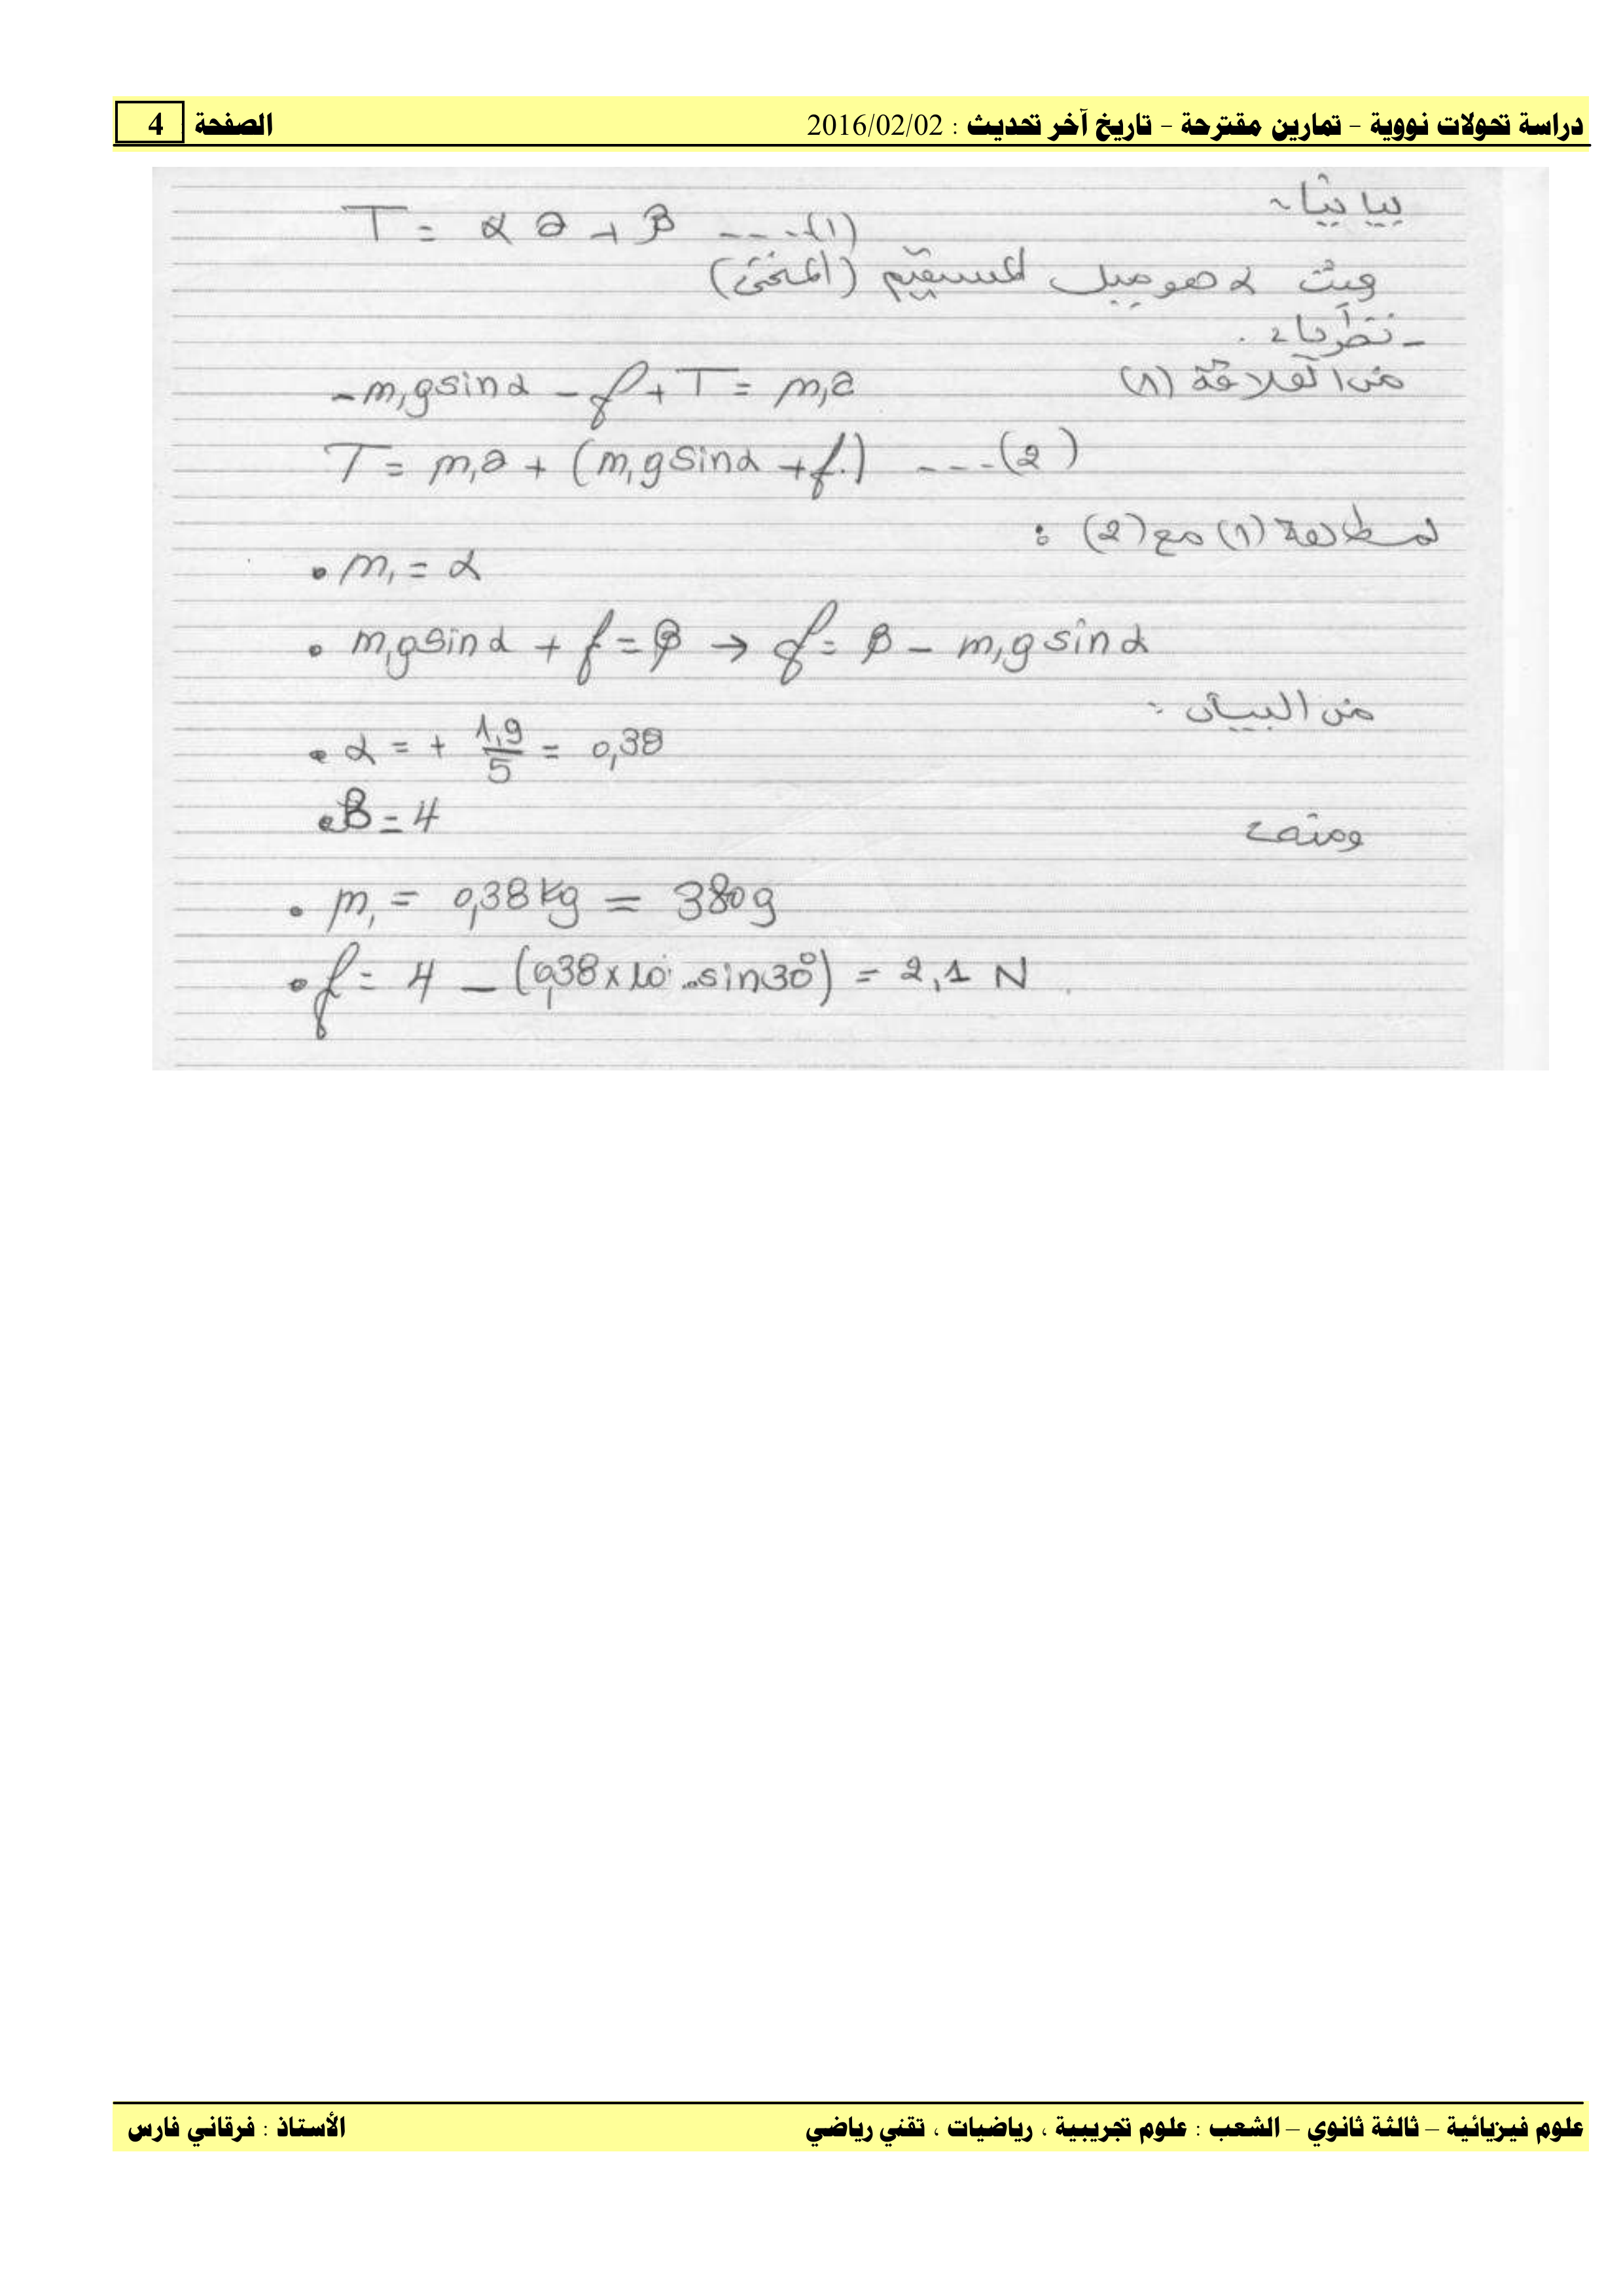 دراسة تحولات نووية – تمارين مقترحة – تاريخ آخر تحديث : 2016/02/02 الصفحة 4
بيانيا
T = α a + β ---- (1)
حيث α هو ميل المستقيم (المنحنى)
- نظريا :
من العلاقة (1)
-m₁g sinα - f + T = m₁a
T = m₁a + (m₁g sinα + f) ---- (2)
لمطابقة (1) مع (2) :
• m₁ = α
• m₁g sinα + f = β → f = β - m₁g sinα
من البيان :
• α = + 1,9/5 = 0,38
• β = 4
ومنه
• m₁ = 0,38 kg = 380 g
• f = 4 - (0,38 × 10 . sin30°) = 2,1 N
علوم فيزيائية – ثالثة ثانوي – الشعب : علوم تجريبية ، رياضيات ، تقني رياضي الأستاذ : فرقاني فارس